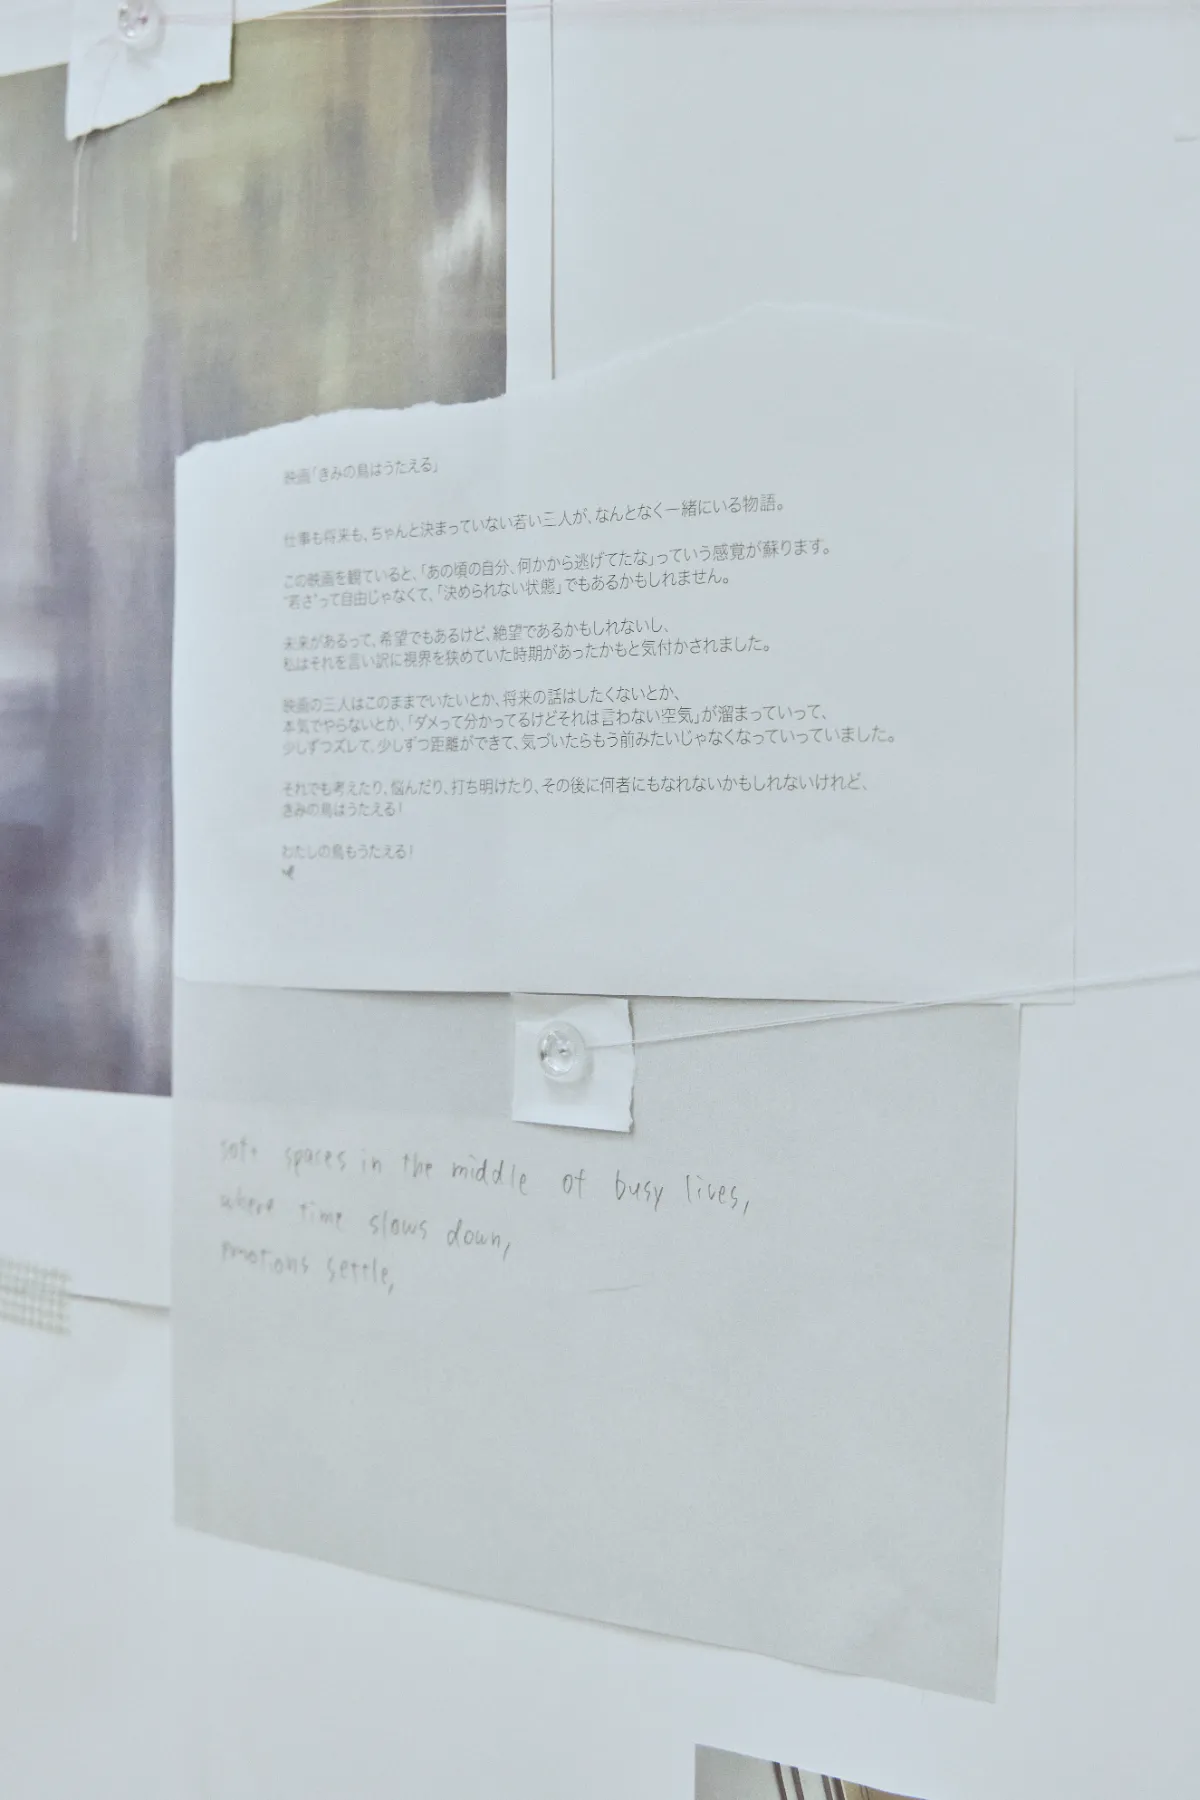 映画「きみの鳥はうたえる」
仕事も将来も、ちゃんと決まっていない若い三人が、なんとなく一緒にいる物語。
この映画を観ていると、「あの頃の自分、何かから逃げてたな」っていう感覚が蘇ります。
“若さ”って自由じゃなくて、「決められない状態」でもあるかもしれません。
未来があるって、希望でもあるけど、絶望であるかもしれないし、
私はそれを言い訳に視界を狭めていた時期があったかもと気付かされました。
映画の三人はこのままでいたいとか、将来の話はしたくないとか、
本気でやらないとか、「ダメって分かってるけどそれは言わない空気」が溜まっていって、
少しずつズレて、少しずつ距離ができて、気づいたらもう前みたいじゃなくなっていっていました。
それでも考えたり、悩んだり、打ち明けたり、その後に何者にもなれないかもしれないけれど、
きみの鳥はうたえる！
わたしの鳥もうたえる！
soft spaces in the middle of busy lives,
where time slows down,
emotions settle,